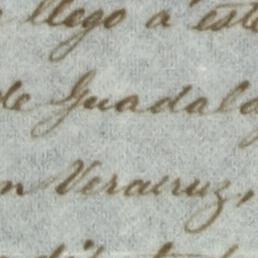 llego a este
de Guadal
n Veracruz,